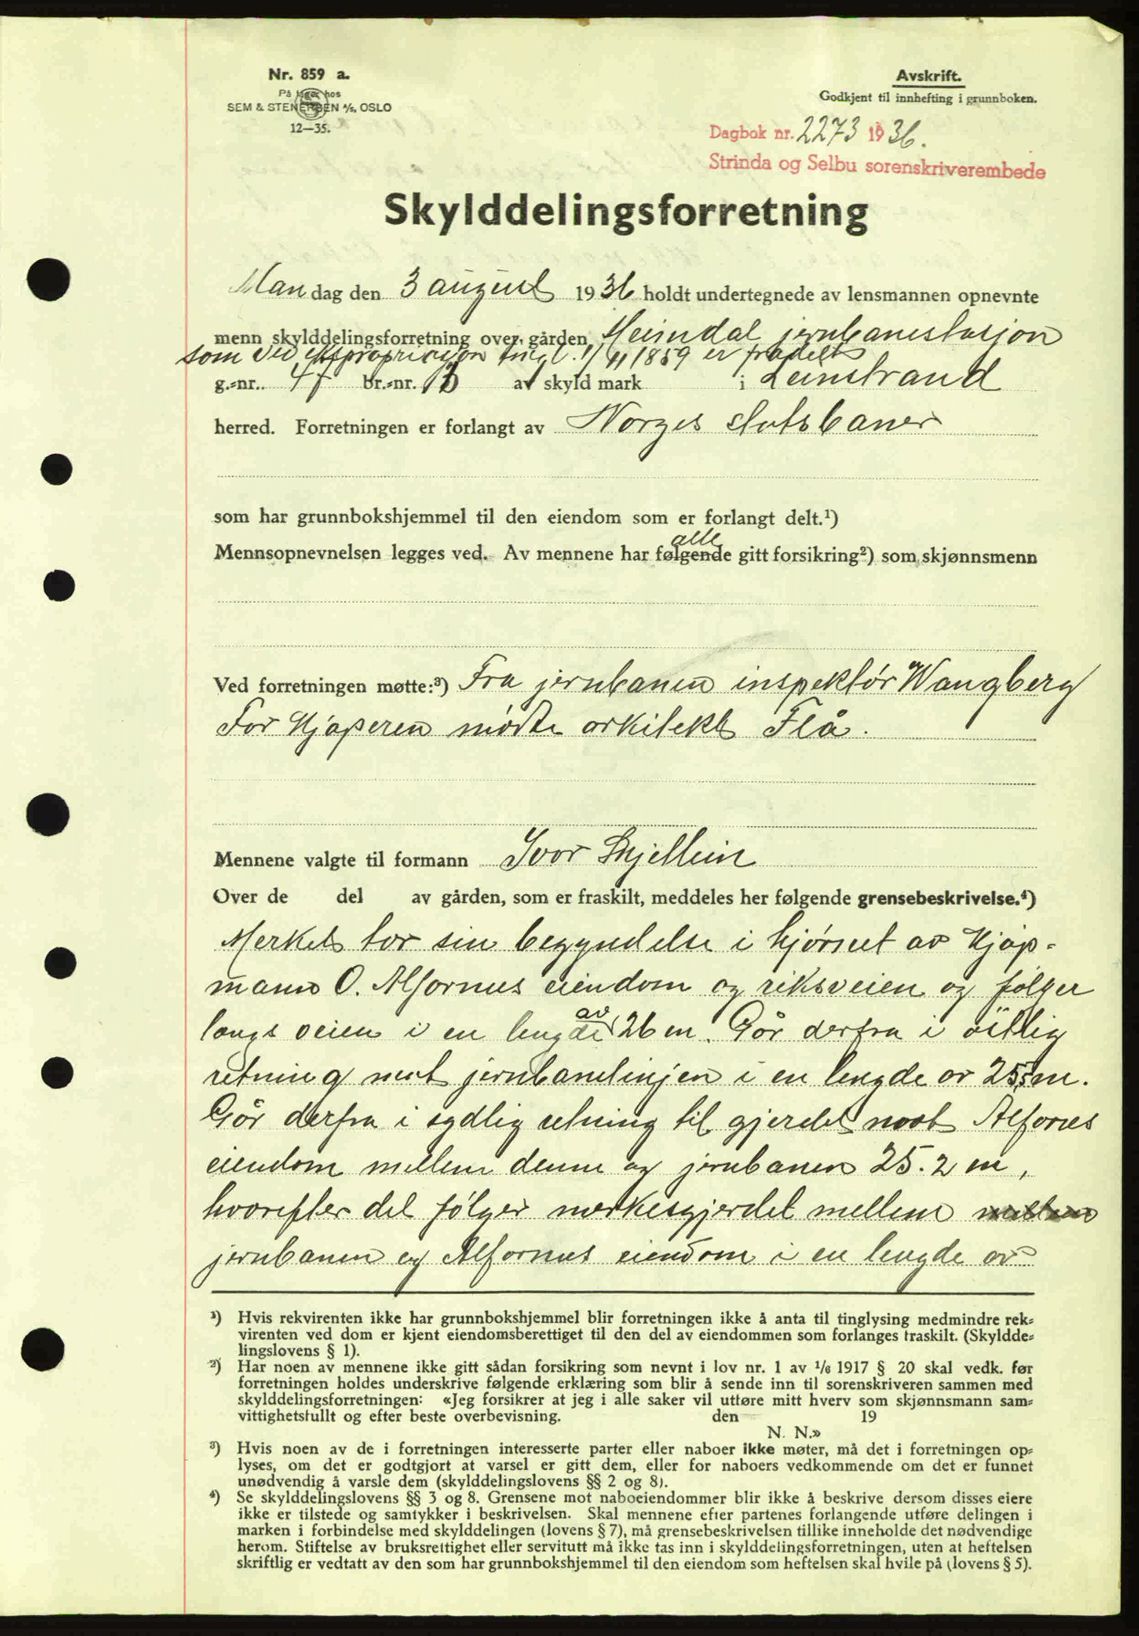 Nr. 859 a.
På lager hos
SEM & STENERSEN A/S, OSLO
12—35.
Avskrift.
Godkjent til innhefting i grunnboken.
Dagbok nr. 2273 1936.
Strinda og Selbu sorenskriverembede
Skylddelingsforretning
Mandag den 3 august 1936 holdt undertegnede av lensmannen opnevnte
menn skylddelingsforretning over gården Heimdal jernbanestasjon
som ved ekspropriasjon tingl. 1/11 1859 er fradelt
g.-nr. 47 br.-nr. av skyld mark i Leinstrand
herred. Forretningen er forlangt av Norges statsbaner
som har grunnbokshjemmel til den eiendom som er forlangt delt.¹)
alle
Mennsopnevnelsen legges ved. Av mennene har følgende gitt forsikring²) som skjønnsmenn
Ved forretningen møtte:³) Fra jernbanen inspektør Wangberg
For Kjøperen møtte arkitekt Flå.
Mennene valgte til formann Ivor Skjellein
Over de del av gården, som er fraskilt, meddeles her følgende grensebeskrivelse.⁴)
Merket tar sin begyndelse i hjørnet av Kjøp-
mann O. Alfornes eiendom og riksveien og følger
langs veien i en lengde av 26 m. Går derfra i østlig
retning mot jernbanelinjen i en lengde av 25,5 m.
Går derfra i sydlig retning til gjerdet mot Alfornes
eiendom mellem denne og jernbanen 25.2 m,
hvorefter det følger merkesgjerdet mellem mellem
jernbanen og Alfornes eiendom i en lengde av
¹) Hvis rekvirenten ikke har grunnbokshjemmel blir forretningen ikke å anta til tinglysing medmindre rek-
virenten ved dom er kjent eiendomsberettiget til den del av eiendommen som forlanges fraskilt. (Skyldde-
lingslovens § 1).
²) Har noen av mennene ikke gitt sådan forsikring som nevnt i lov nr. 1 av 1/6 1917 § 20 skal vedk. før
forretningen holdes underskrive følgende erklæring som blir å sende inn til sorenskriveren sammen med
skylddelingsforretningen: «Jeg forsikrer at jeg i alle saker vil utføre mitt hverv som skjønnsmann sam-
vittighetsfullt og efter beste overbevisning. den 19
N. N.»
³) Hvis noen av de i forretningen interesserte parter eller naboer ikke møter, må det i forretningen op-
lyses, om det er godtgjort at varsel er gitt dem, eller for naboers vedkommende om det er funnet
unødvendig å varsle dem (skylddelingslovens §§ 2 og 8).
⁴) Se skylddelingslovens §§ 3 og 8. Grensene mot naboeiendommer blir ikke å beskrive dersom disses eiere
ikke er tilstede og samtykker i beskrivelsen. Skal mennene efter partenes forlangende utføre delingen i
marken i forbindelse med skylddelingen (lovens § 7), må grensebeskrivelsen tillike inneholde det nødvendige
herom. Stiftelse av bruksrettighet eller servitutt må ikke tas inn i skylddelingsforretningen, uten at heftelsen
skriftlig er vedtatt av den som har grunnbokshjemmel til den eiendom som heftelsen skal hvile på (lovens § 5).